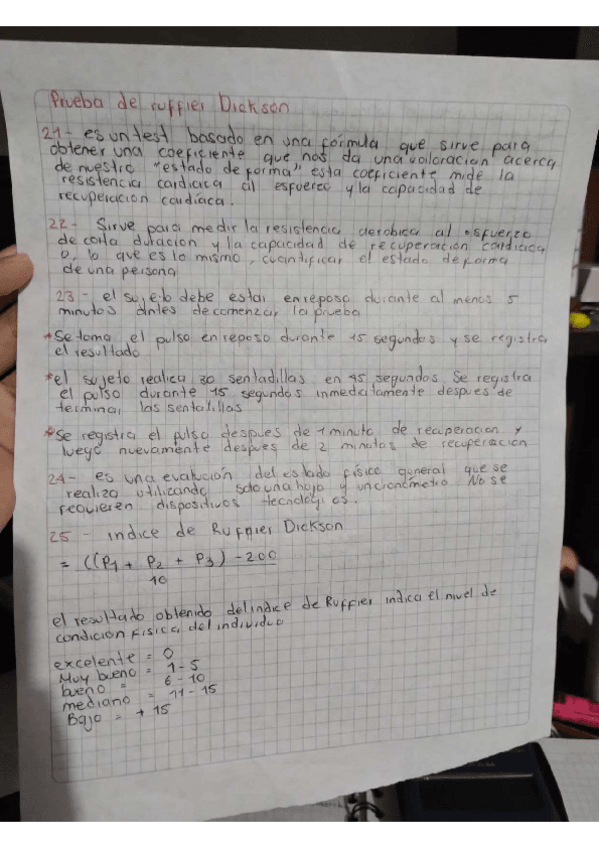 Prueba de ruffier Dickson
21- es un test basado en una fórmula que sirve para
obtener una coeficiente que nos da una valoracion acerca
de nuestro "estado de forma", esta coeficiente mide la
resistencia cardiaca al esfuerzo y la capacidad de
recuperacion cardíaca.
22- Sirve para medir la resistencia aerobica al esfuerzo
de corta duracion y la capacidad de recuperacion cardiaca
o, lo que es lo mismo, cuantificar el estado de forma
de una persona
23- el sujeto debe estar en reposo durante al menos 5
minutos antes de comenzar la prueba
*Se toma el pulso en reposo durante 15 segundos y se registra
el resultado
*el sujeto realica 30 sentadillas en 45 segundos. Se registra
el pulso durante 15 segundos inmediatamente despues de
terminar las sentadillas
*Se registra el pulso despues de 1 minuto de recuperacion y
luego nuevamente despues de 2 minutos de recuperacion
24- es una evalución del estado físico general que se
realiza utilizando solo una hoja y un cronómetro. No se
requieren dispositivos tecnologicos.
25- indice de Ruffier Dickson
= ((P1 + P2 + P3) - 200
10
el resultado obtenido del indice de Ruffier indica el nivel de
condición física del individuo
excelente = 0
Muy bueno = 1-5
bueno = 6-10
mediano = 11-15
Bajo = + 15